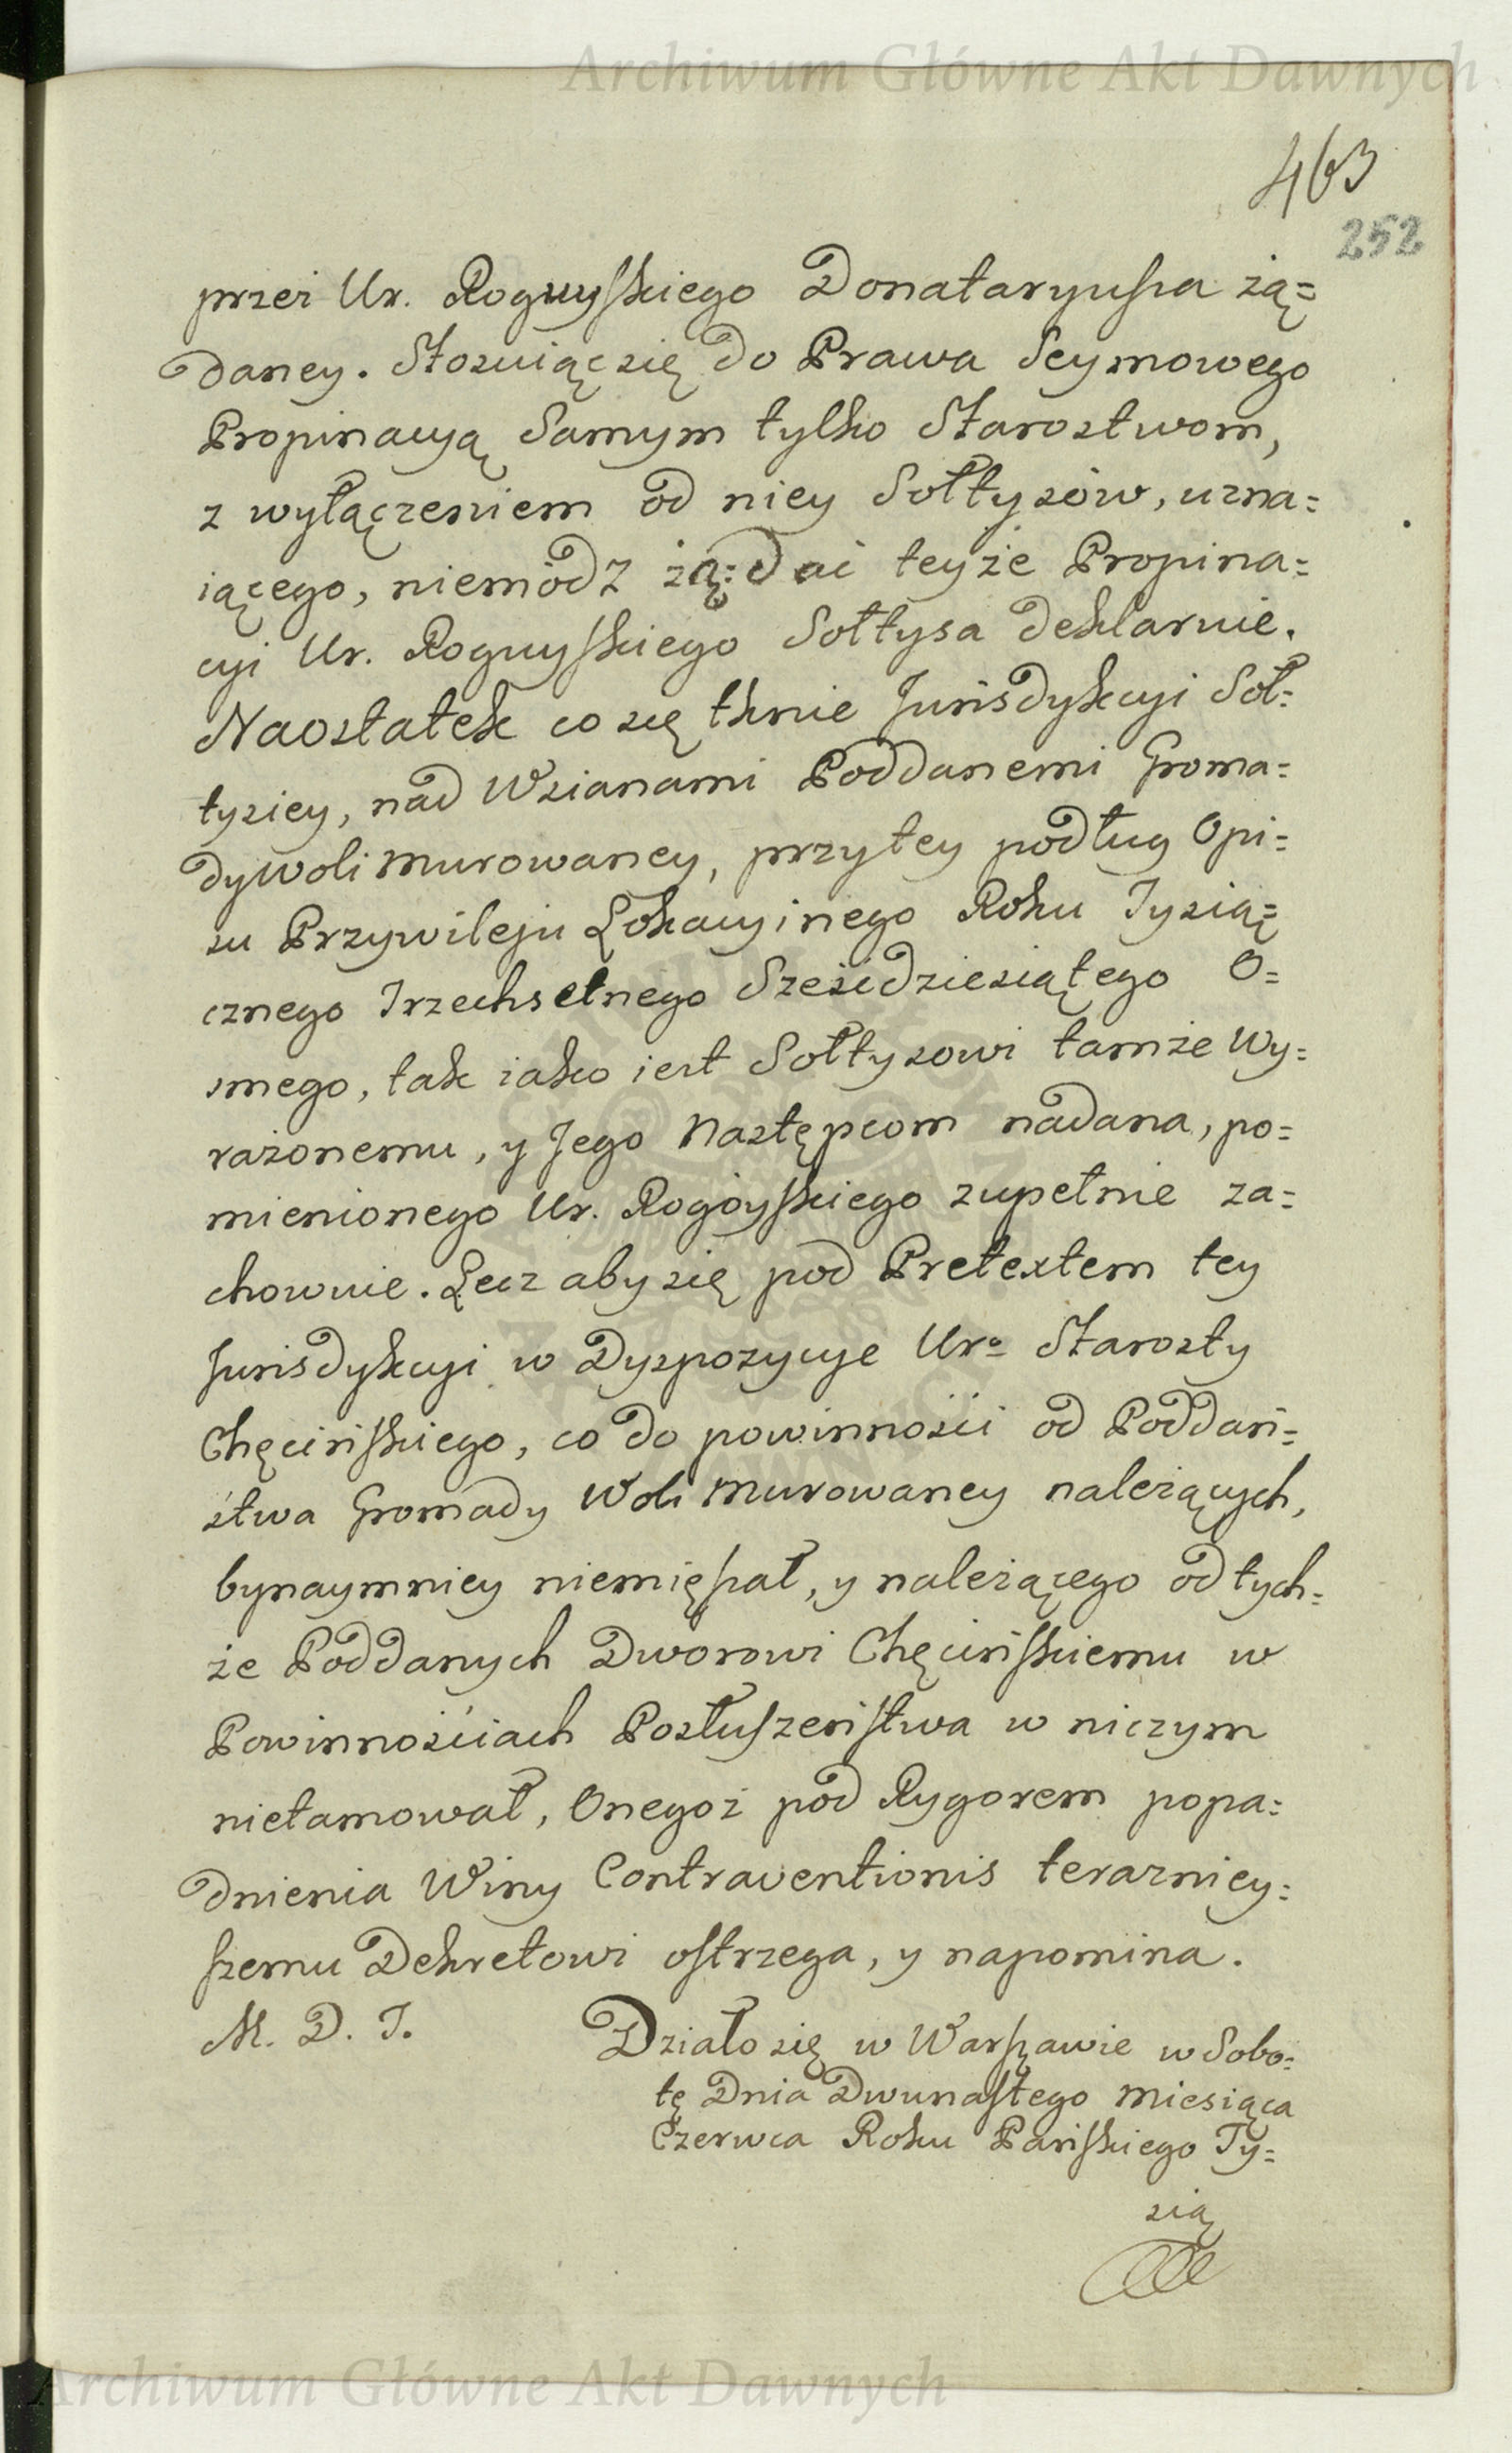 Archiwum Główne Akt Dawnych
463
252
przez Ur. Roguyskiego Donataryusza żą=
daney. Stosuiąc się do Prawa Seymowego
Propinacyą Samym tylko Starostwom,
z wyłączeniem od niey Sołtysów, uzna=
iącego, niemódz żą=dać teyże Propina=
cyi Ur. Roguyskiego Sołtysa deklaruie.
Naostatek co się tknie Jurisdykcyi Soł=
tysiey, nad Wsianami Poddanemi Groma=
dy Woli Murowaney, przy tey podług Opi=
su Przywileju Lokacyinego Roku Tysią=
cznego Trzechsetnego Sześćdziesiątego O=
smego, tak iako iest Sołtysowi tamże Wy=
rażonemu, y Jego Następcom nadana, po=
mienionego Ur. Rogóyskiego zupełnie za=
chowuie. Lecz aby się pod Pretextem tey
Jurisdykcyi w Dyspozycye Uro Starosty
Chęcińskiego, co do powinności od Poddań=
stwa Gromady Woli Murowaney należących,
bynaymniey niemięszał, y należącego od tych=
że Poddanych Dworowi Chęcińskiemu w
Powinnościach Posłuszeństwa w niczym
nietamował, Onegoż pod Rygorem popa=
dnienia Winy Contraventionis terazniey=
szemu Dekretowi ostrzega, y napomina.
M. D. J.
Działo się w Warszawie w Sobo=
tę Dnia Dwunastego Miesiąca
Czerwca Roku Pańskiego Ty=
sią
Archiwum Główne Akt Dawnych